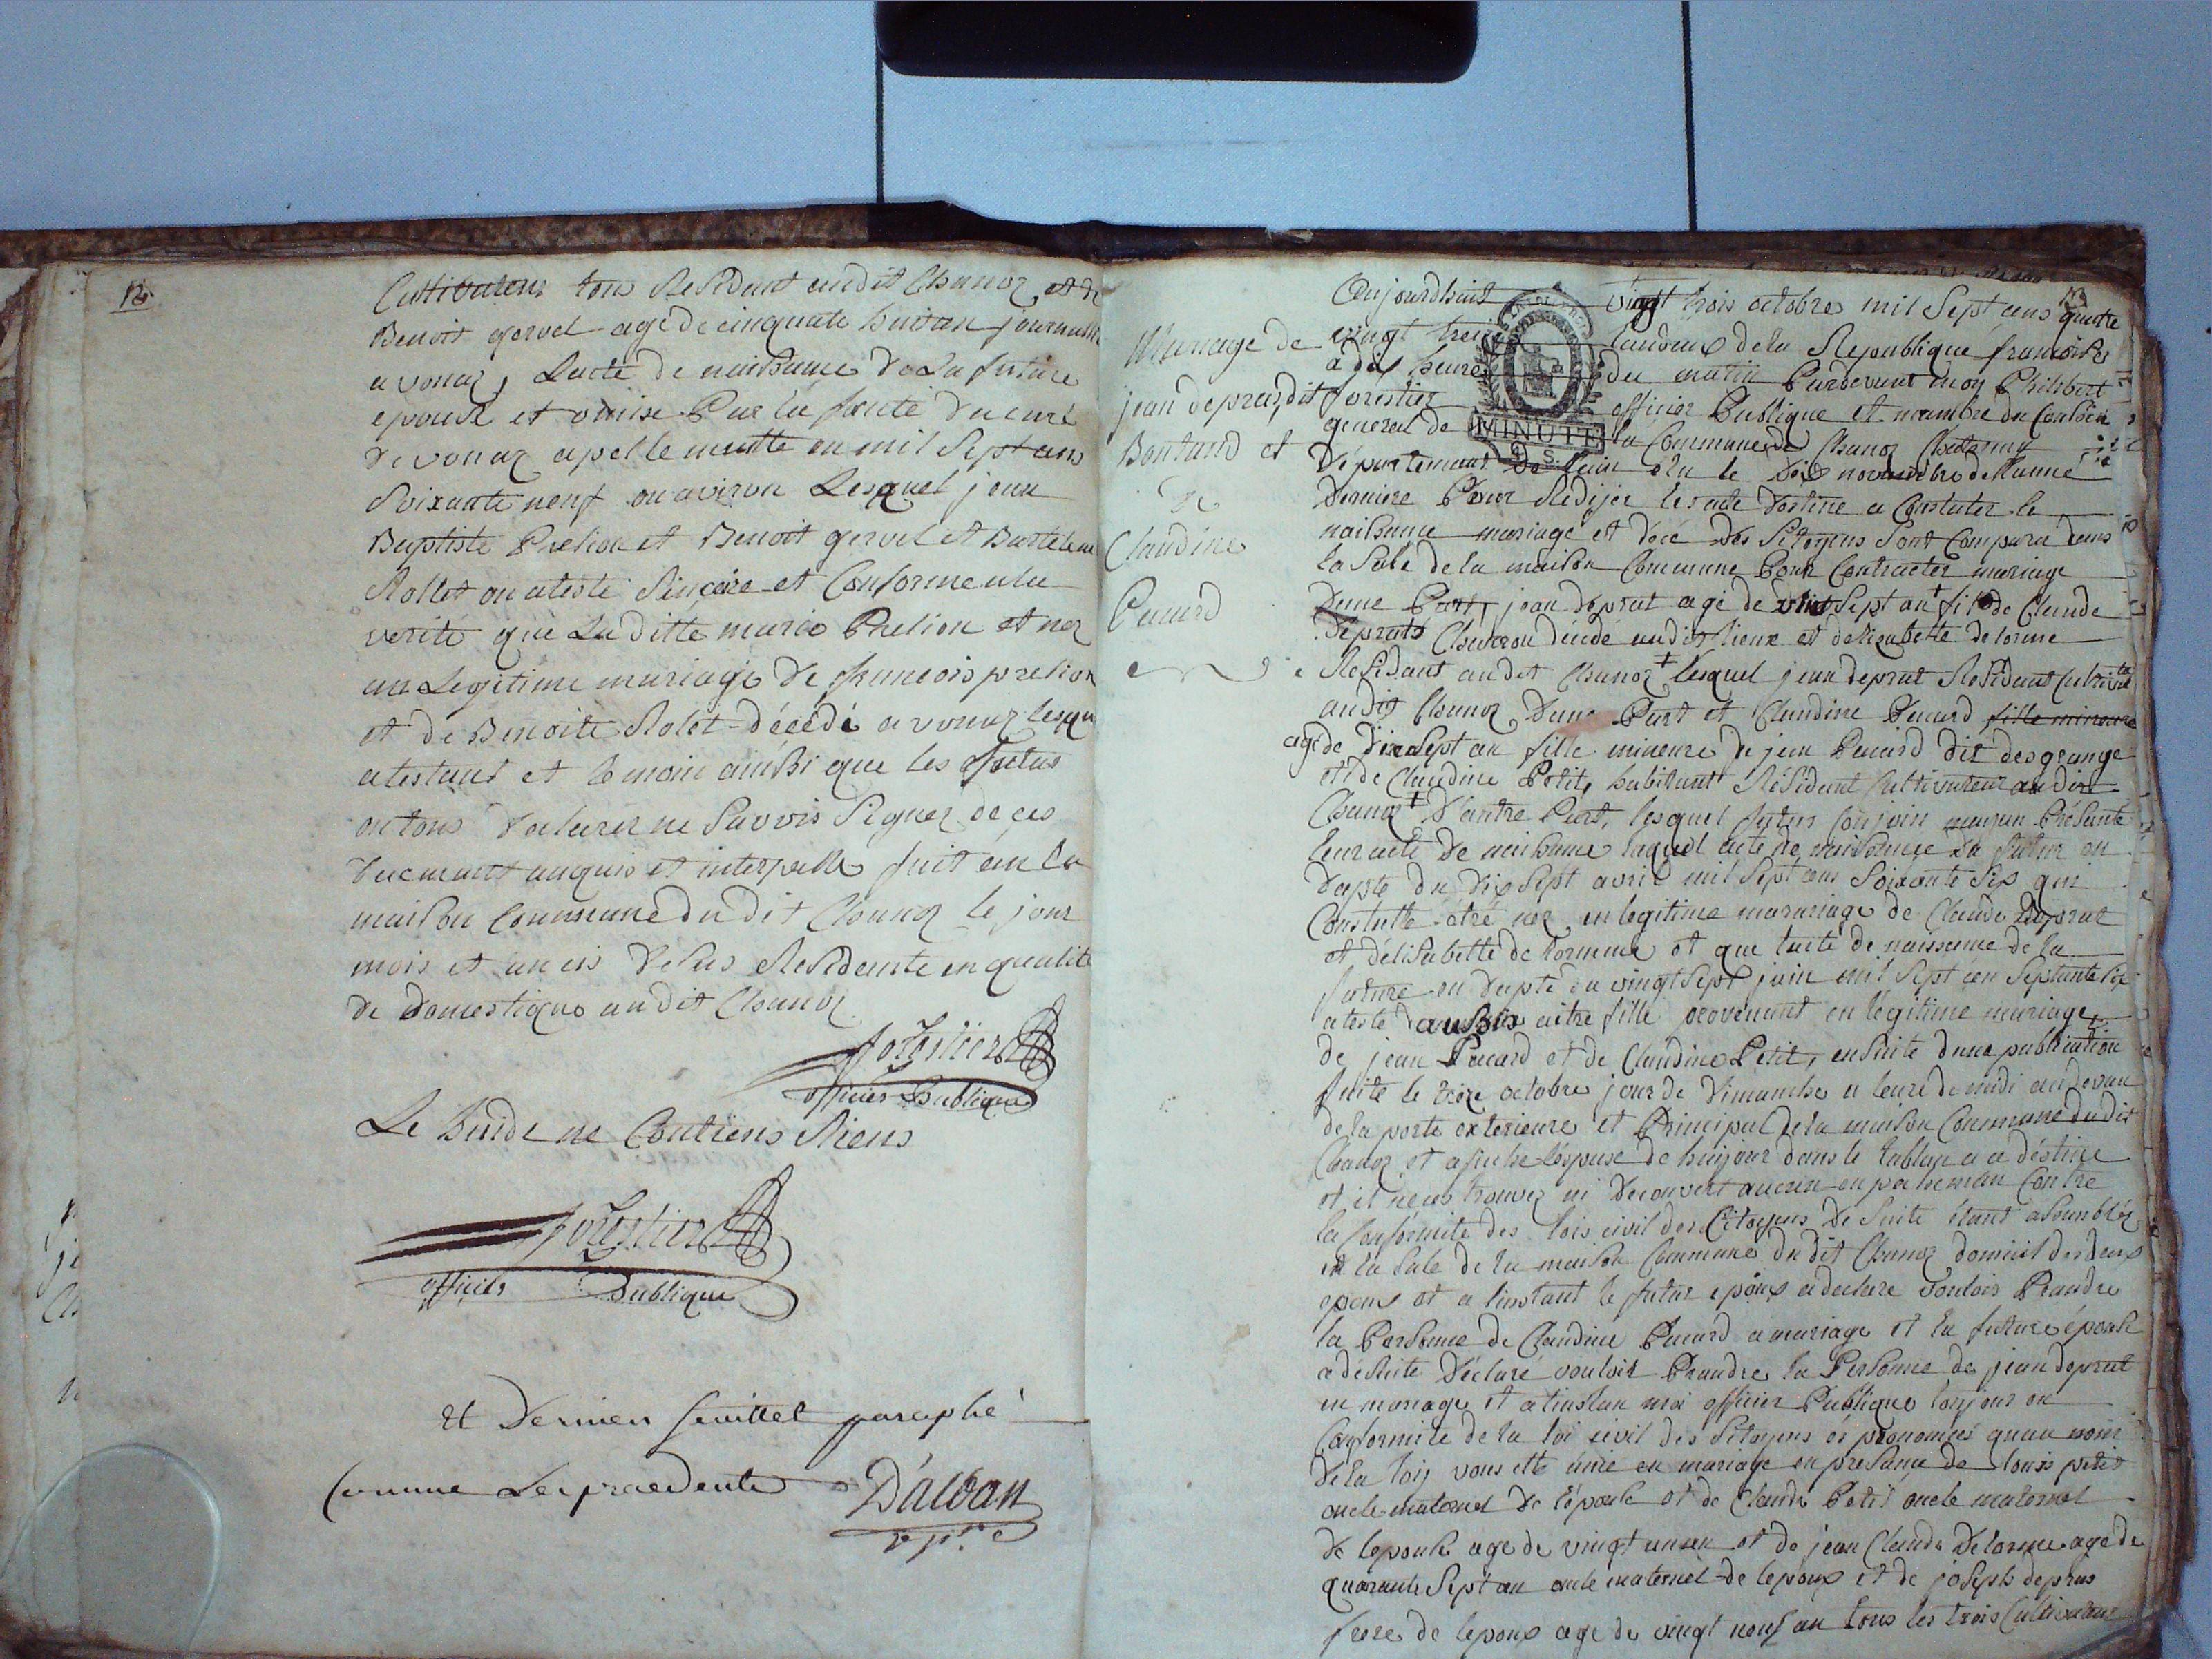 12
Cultivateur tous Residant audit Chanoz et de
Benoit gervel agé de cinquate huitan journallié
a vonaz, Lacte de naissance de La future
epouse et omise Par la faute du curé
de vonaz apellé mutte en mil Sept ans
Soixante neuf ou aviron Lesquel jean
Baptiste Prelion et Benoit gervel et Bartelemi
Rollet on atesté Sincere et Conforme a la
verité que La ditte marie Prelion et nez
en Legitime mariage de francois prelion
et de Benoite Rolet décédé a vonaz lesqu
atestant et temoin ainssi que les futur
on tous declarer ne Savoir Signer de ces
duemant anquis et interpellé fait en la
maison Commune du dit Chanoz le jour
mois et an cis desus Residente en qualité
de domestique audit Chanoz
forestier
officier Publique
Le Vuide ne Contiens Riens
forestier
officier Publique
et Dernier feuillet paraphé
Comme les precedents Dalban
Mariage de
jean depras, dit
Bontand et
de
Claudine
Pucard
Aujourdhuit vingt trois octobre mil Sept cens quatre
vingt treize landeux de la Republique francoise
a dix heure du matin Pardevant moy Philibert
forestier officier Publique et mambre du Conseil
general de la Commune de Chanoz Chatenay
MINUTE
Département de lain élu le dix novambre de lanné
derniere Pour Redijer les acte destiné a Constater le
naissance mariage et décé des Sitoyens Sont Comparu dans
la Sale de la maison Commune Pour Contracter mariage
dune Part, jean deprat agé de vint Sept an fils de Claude
deprats Charron décédé audit lieux et delizabette delorme
Residant audit Chanoz lesquel jean deprat Residant Cultivateur
audit Chanoz dune Part et Claudine Pucard fille mineure
agé de dixsept an fille mineure de jean Pucard dit desgrange
et de Claudine Petit, habitant Résidant Cultivateur audit
Chanoz d'autre Part, lesquel futur Conjoin mayan Présenté
leur acte de naissance laquel acte de naissance du futur en
dapte du dix Sept avril mil Sept cens Soixante Six qui
Constatte étré nez en legitime marariage de Claude Deprat
et délisabette de lormme et que lacte de naissance de la
future en dapte du vingt Sept juin mil Sept cen Septante Six
ateste aussis aitre fille provenant en légitime mariage
de jean Pucard et de Claudine Petit, ensuite dune publication
faite le treize octobre jour de dimanche a leure de midi au devan
de la porte exterieure et Principal de la maison Commune dudit
Chanoz et afiche lespase de huijour dans le tablau a ce déstiné
et il ne cest trouvez ni decouvert aucun enpecheman Contre
la Conformité dés lois civil des Citoyens de Suite étant assamblés
en la Sale de la maison Commune du dit Chanoz domicil des deux
epoux et a linstant le futur époux a declaré vouloir Prandre
la Personne de Claudine Pucard a mariage et la future épouse
a désuite déclaré vouloir Prandre la Personne de jean deprat
en mariage et a linstan moi officier Publique toujour en
Conformité de la loi civil dés Sitoyens és prononcés quau nom
de la loy vous ette unie en mariage en presance de louis petit
oncle maternel de lépouse et de Claude Petit oncle maternel
de lepouse agé de vingt unan et de jean Claude Delorme agé de
quarante Sept an oncle maternel de lepoux et de joseph depras
frere de lepoux agé de vingt neuf an tous les trois Cultivateur